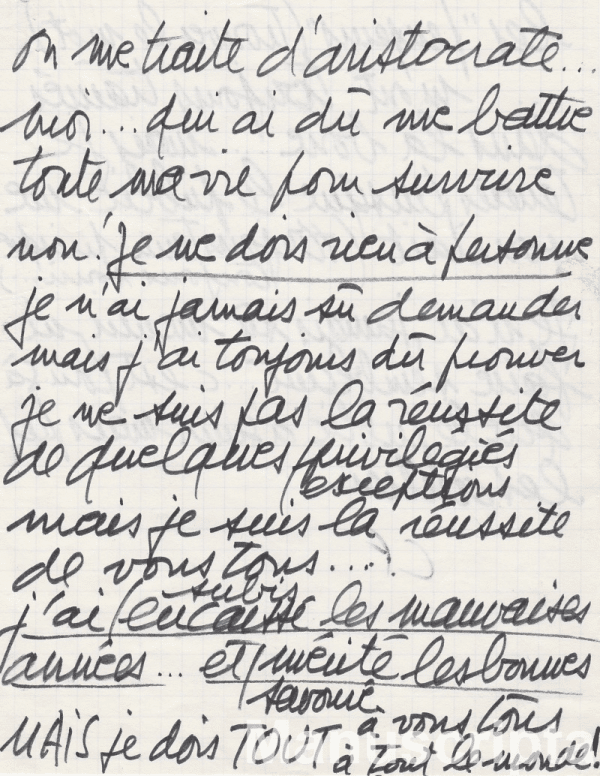 on me traite d'aristocrate...
moi... qui ai dû me battre
toute ma vie pour survivre
non! je ne dois rien à personne
je n'ai jamais sû demander
mais j'ai toujours dû prouver
je ne suis pas la réussite
de quelques privilegiés
exceptions
mais je suis la réussite
de vous tous....
subis
j'ai encaissé les mauvaises
années... et mérité les bonnes
savouré
à vous tous
MAIS je dois TOUT
à tout le monde!
Manuscripta